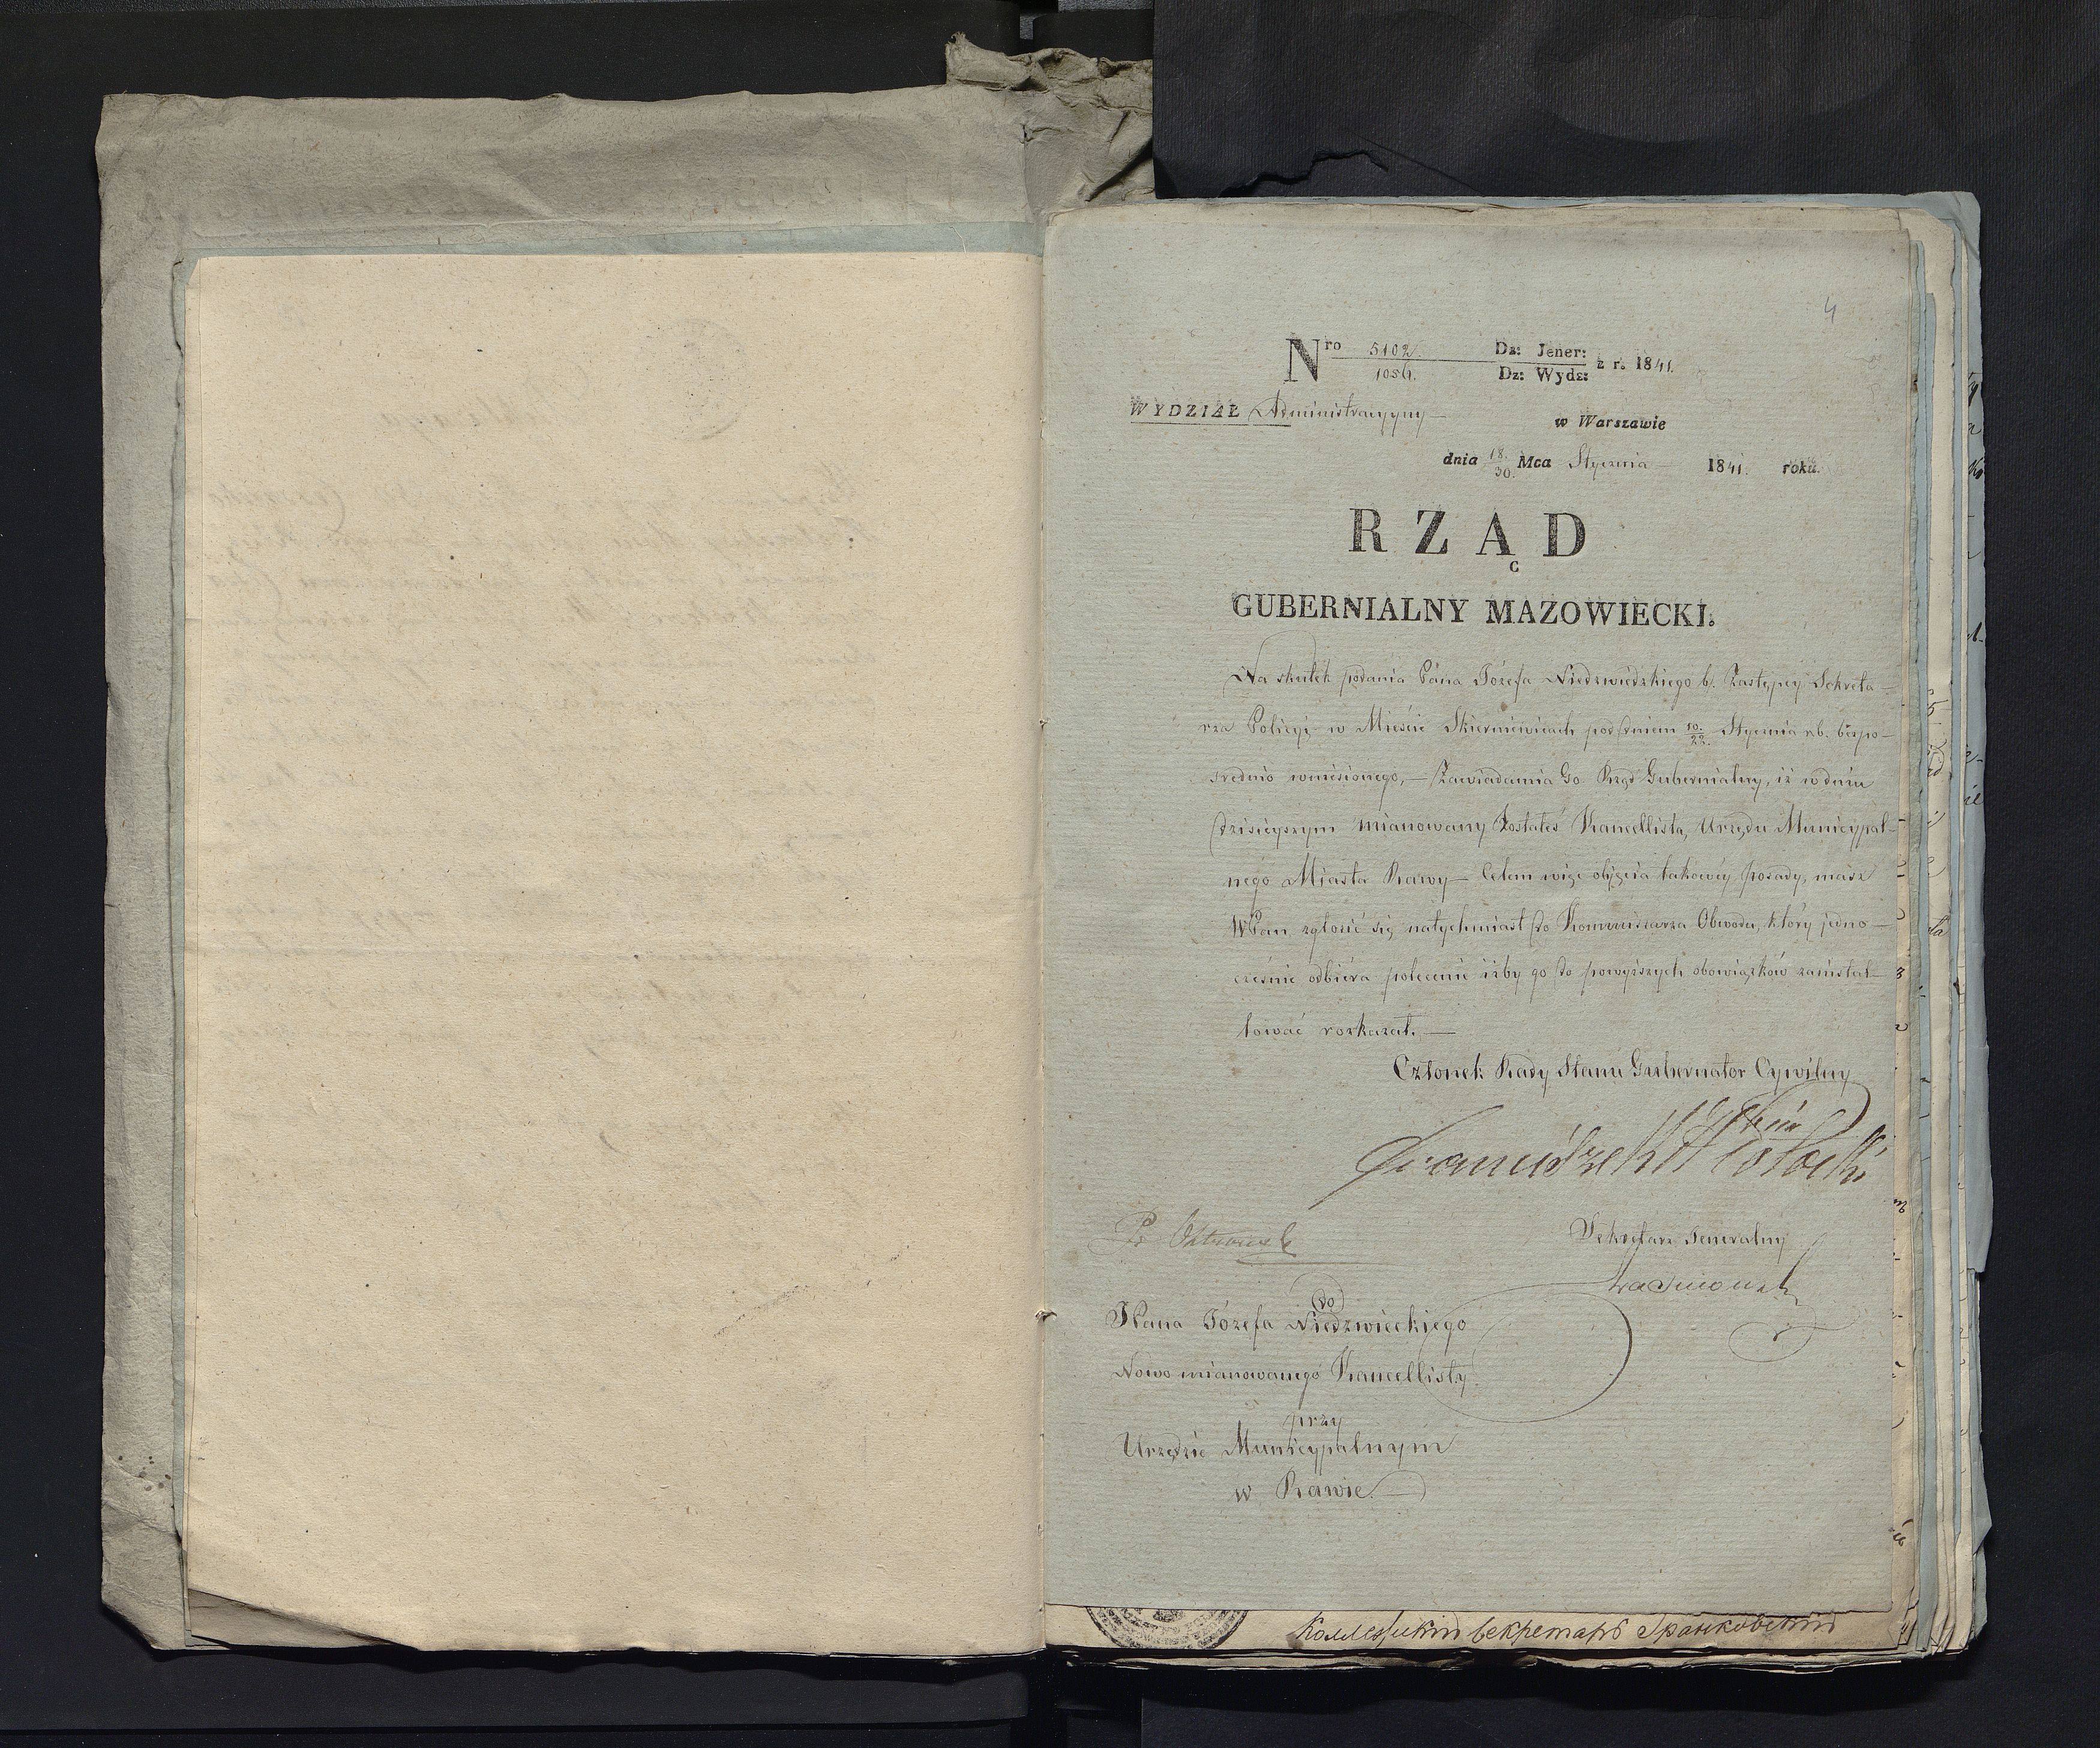 4
Nro 5102 Dz: Jener: z r. 1841.
1054. Dz: Wydz:
WYDZIAŁ Administracyjny —
w Warszawie
dnia 18/30. Mca Stycznia — 1841. roku.
RZĄD
GUBERNIALNY MAZOWIECKI.
Na skutek podania Pana Józefa Niedzwiedzkiego b. Zastępcy Sekreta-
rza Policyi w Mieście Skierniewicach pod dniem 10/22. Stycznia rb. bezpo-
srednio wniesionego, — Zawiadamia Go Rząd Gubernialny, iż w dniu
dzisieyszym mianowany Zostałeś Kancellistą, Urzędu Municypal-
nego Miasta Rawy — Celem więc objęcia takowéy posady, masz
WPan zgłosić się natychmiast do Kommissarza Obwodu, który jedno-
cześnie odbiéra polecenie iżby go do powyższych obowiązków zainstal-
lować rozkazał. —
Członek Rady Stanu Gubernator Cywilny
Sekretarz Jeneralny
Do
JPana Józefa Niedzwieckiego
Nowo mianowanego Kancellisty
przy
Urzędzie Municypalnym
w Rawie. —
Коллежскій Секретарь